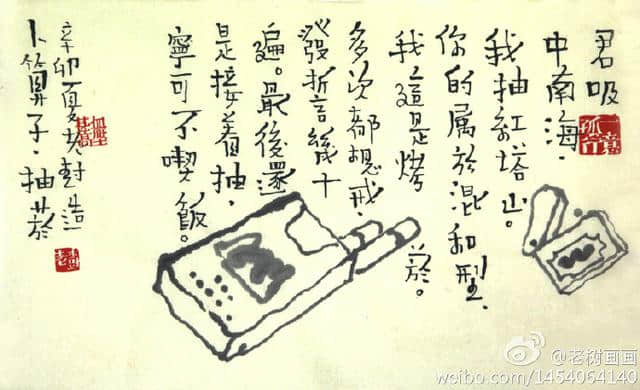 君吸
中南海,
我抽紅塔山。
你的属於混和型,
我這是烤菸。
多次都想戒,
發誓言幾十
遍。最後還
是接着抽,
寧可不喫飯。
辛卯夏
卜算子·抽菸
一意孤行
@老树画画
weibo.com/1454064140